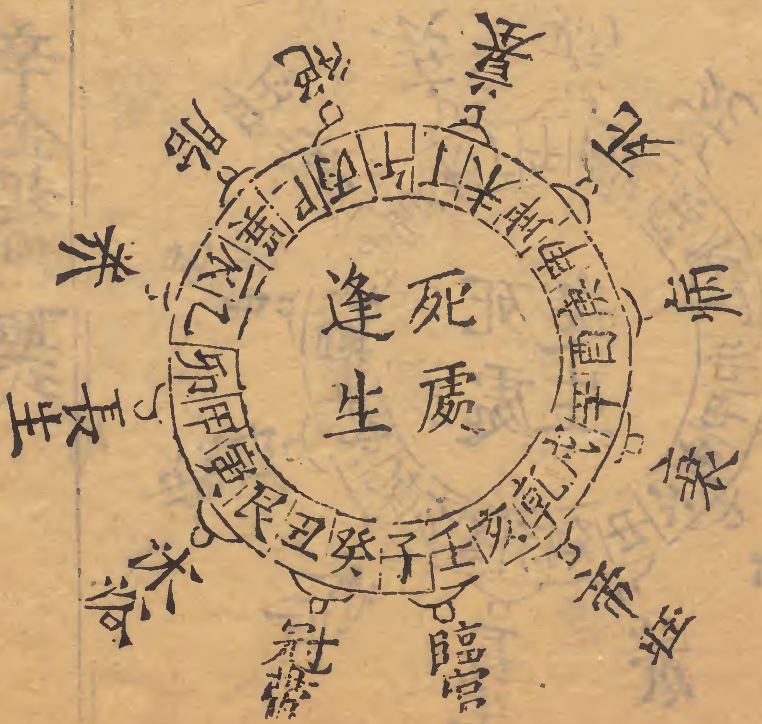 死處
逢生
子癸丑艮寅甲卯乙辰巽巳丙午丁未坤申庚酉辛戌乾亥壬
長生
沐浴
冠帶
臨官
帝旺
衰
病
死
墓
絶
胎
養